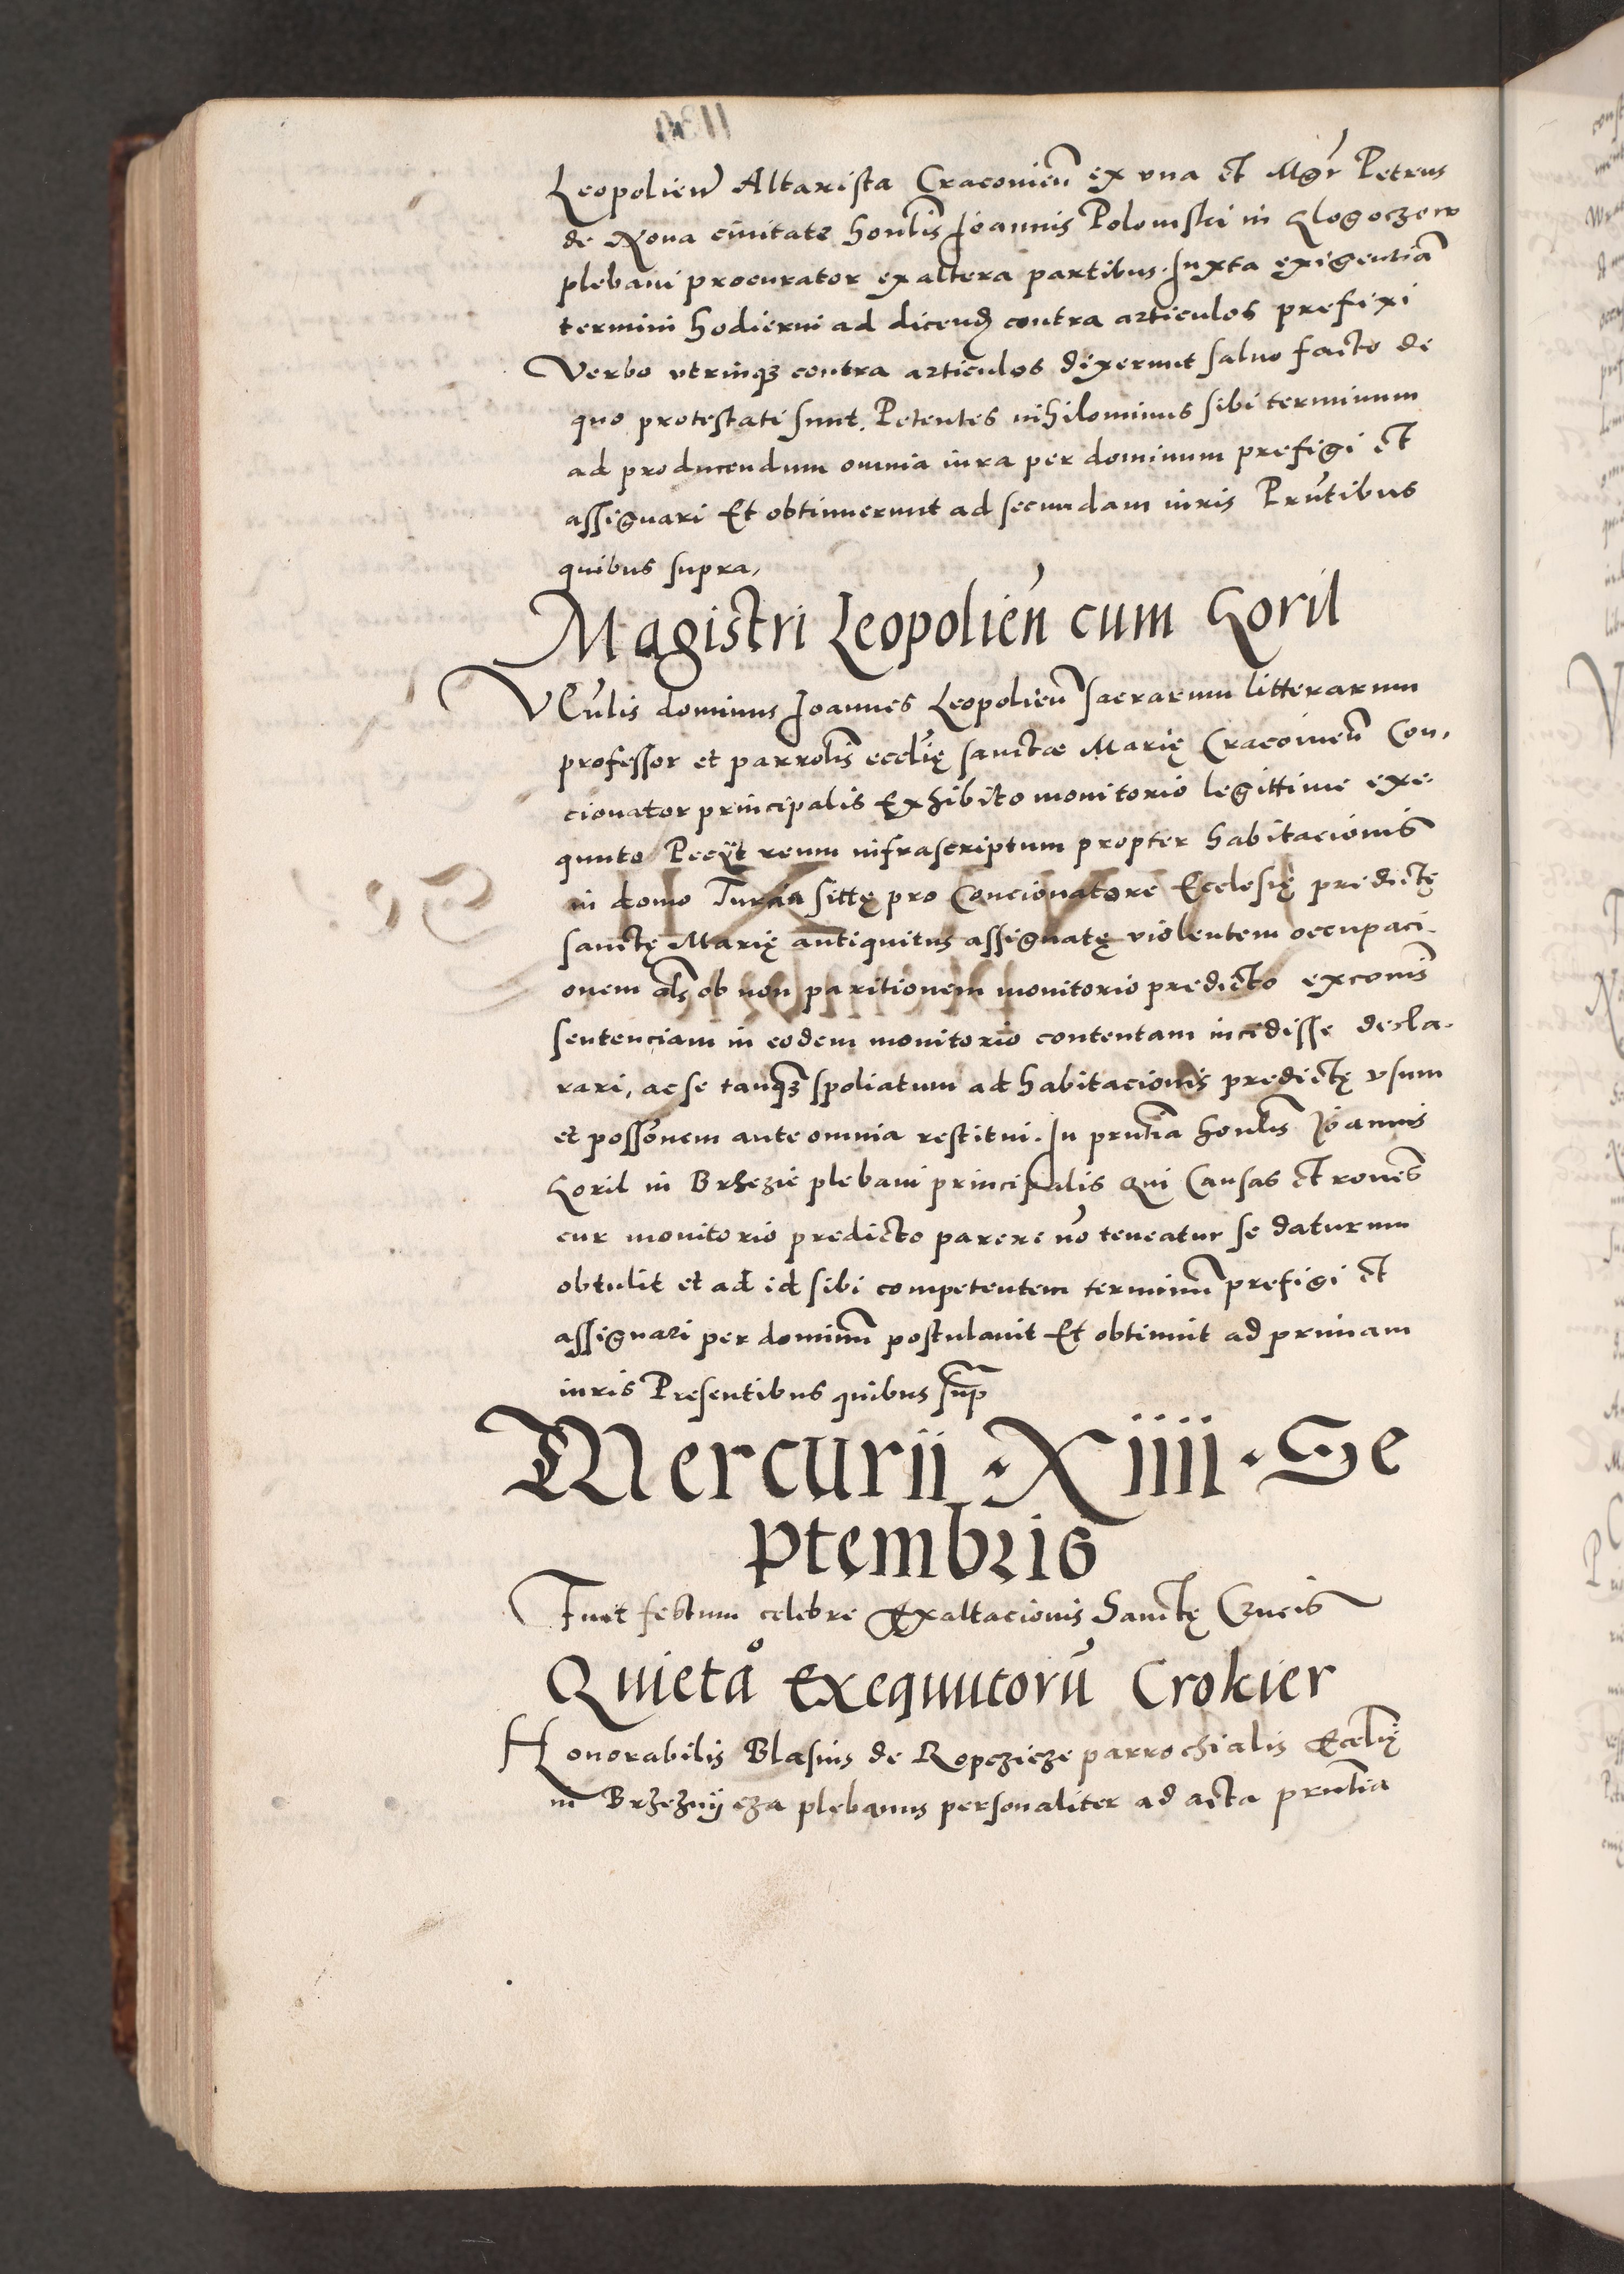 Leopolien̄ Altarista Cracovien̄ ex vna et Mgr̄ Petrus
de Nova civitate Honlis̄ Joannis Polomski in Glogoczow
plebani procurator ex altera partibus. Juxta exigentiā
termini hodierni ad dicend̄ contra articulos prefixi
Verbo vtrinqꝫ contra articulos dixerunt salvo facto de
quo protestati sunt. Petentes nihilominus sibi terminum
ad producendum omnia iura per dominum prefigi et
assignari Et obtinuerunt ad secundam iuris Prn̄tibus
quibus supra,
Magistri Leopolien̄ cum Goril
Vn̄lis dominus Joannes Leopolien̄ sacrarum litterarum
professor et parrolis̄ ecclię̄ sanctae Marię Cracovien̄ Con,
cionator principalis Exhibito monitorio legittime exe-
quuto Peciit reum infrascriptum propter habitacionis
in domo sittę pro Concionatore Ecclesię predictę
sanctę Marię antiquitus assignatę violentem occupaci-
onem als̄ ob non paritionem monitorio predicto exconis̄
sentenciam in eodem monitorio contentam incidisse decla-
rari, ac se tanqꝫ spoliatum ad habitacionis predictę vsum
et possōnem ante omnia restitui. In prn̄tia honlis̄ Joannis
Goril in Brzezie plebani principalis Qui Causas et ronēs
cur monitorio predicto parere nō teneatur se daturum
obtulit et ad id sibi competentem terminū prefigi et
assignari per dominū postulavit Et obtinuit ad primam
iuris Presentibus quibus sup̄
Mercurii · Xiiii · Se
ptembris
Fuit festum celebre Exaltacionis Sanctę Crucis
Quietaº Exequutorū Crokier
Honorabilis Blasius de Ropczicze parrochialis Ecclię̄
in Brzeznÿcza plebanus personaliter ad acta prn̄tia